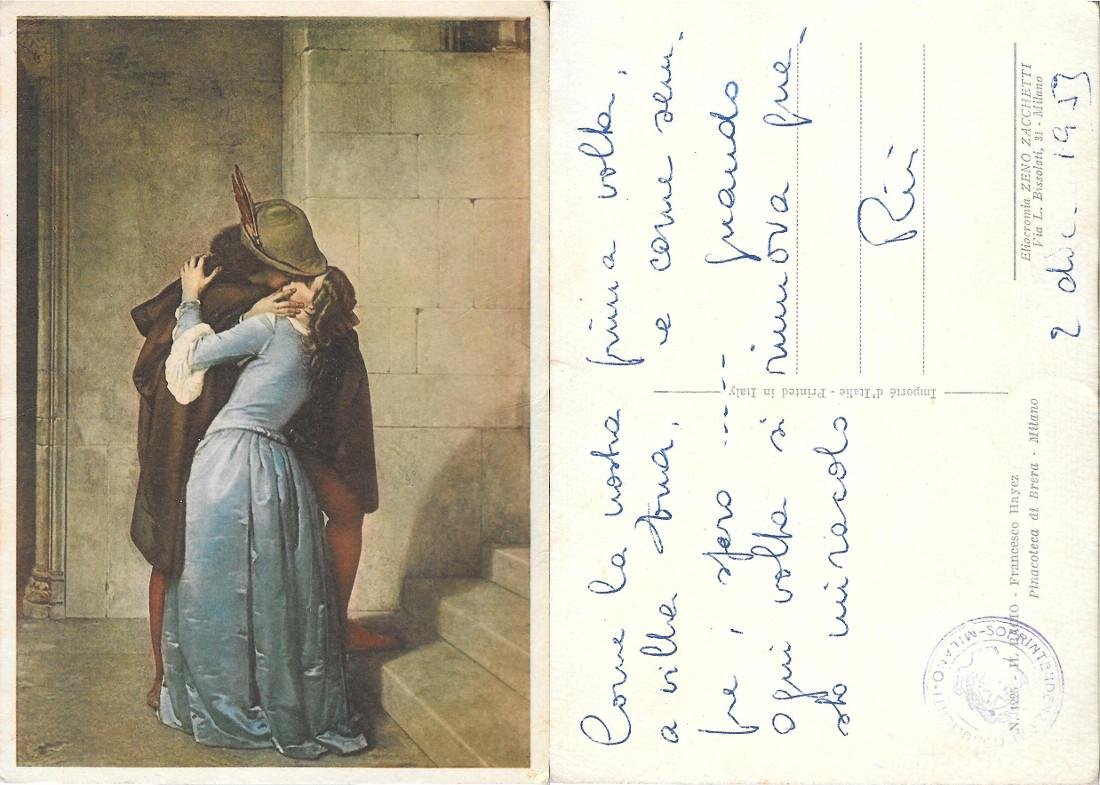 Come la nostra prima volta,
a villa e come sem-
pre, spero ..... quando
ogni volta si rinnova que-
sto miracolo
2 dic. 1953
Eliocromia ZENO ZACCHETTI
Via L. Bissolati, 31 - Milano
Importé d'Italie - Printed in Italy
IL BACIO - Francesco Hayez
Pinacoteca di Brera - Milano
MILANO